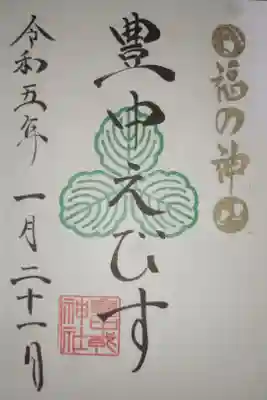 福の神
豊中えびす
神社
令和五年 一月二十一日